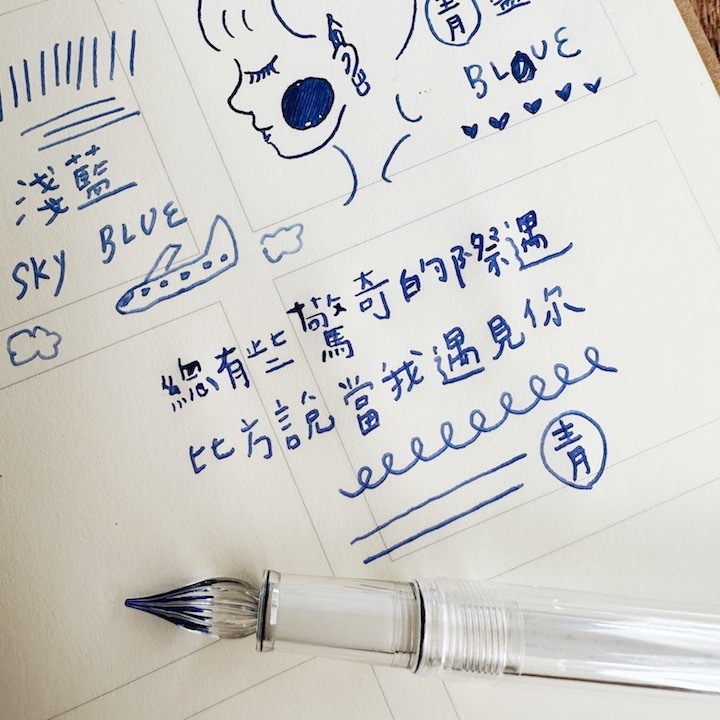 青藍
BLUE
淺藍
SKY BLUE
總有些 驚奇的際遇
比方說當我遇見你
青